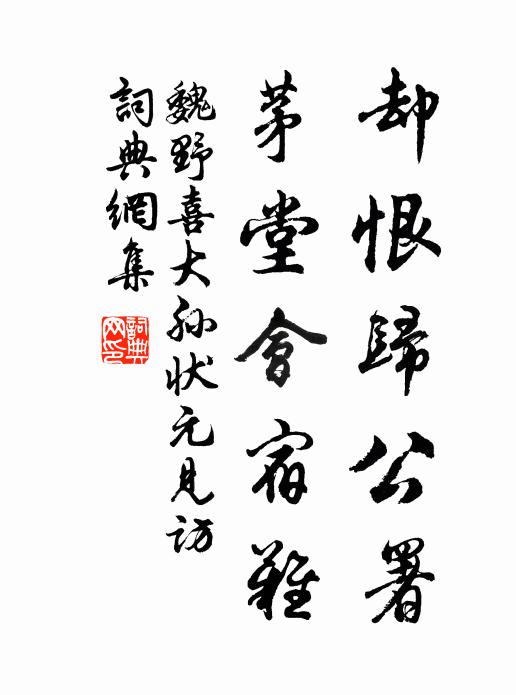 却恨歸公署
茅堂會宿難
魏野喜大孙状元見访
詞典網集
詞典网印